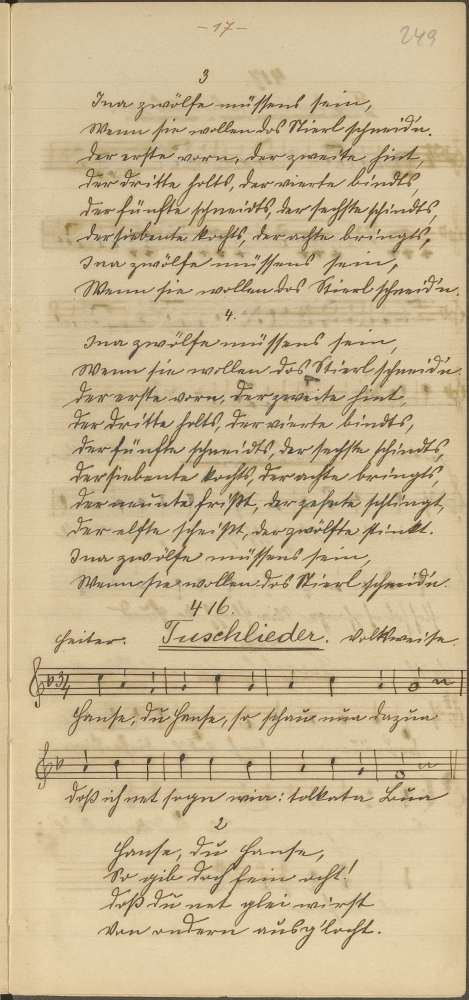 - 17 -
249
3
Ina zwölfe müssens sein,
Wenn sie wollen das Stierl schneidn.
Der erste vorn, der zweite hint,
der dritte holts, der vierte bindts
der fünfte schneidts, der sechste schindts,
der siebente kochts, der achte bringts,
Ina zwölfe müssens sein,
Wenn sie wollen das Stierl schneid'n.
4.
Ina zwölfe müssens sein,
Wenn sie wollen das Stierl schneidn.
der erste vorn, der zweite hint,
der dritte holts, der vierte bindts,
der fünfte schneidts, der sechste schindts,
der siebente kochts, der achte bringts,
der neunte frißt, der zehnte schlingt,
der elfte scheißt, der zwölfte stinkt.
Ina zwölfe müssens sein,
Wenn sie wollen das Stierl schneid'n.
416.
Heiter. Tuschlieder. Volksweise.
3/4
Hanse, du Hanse, so schau nua dazua
daß ich net sogn mia: tolkata Bua
2
Hanse, du Hanse,
So gib doch fein acht!
daß du net glei wirst
von andern ausg'locht.